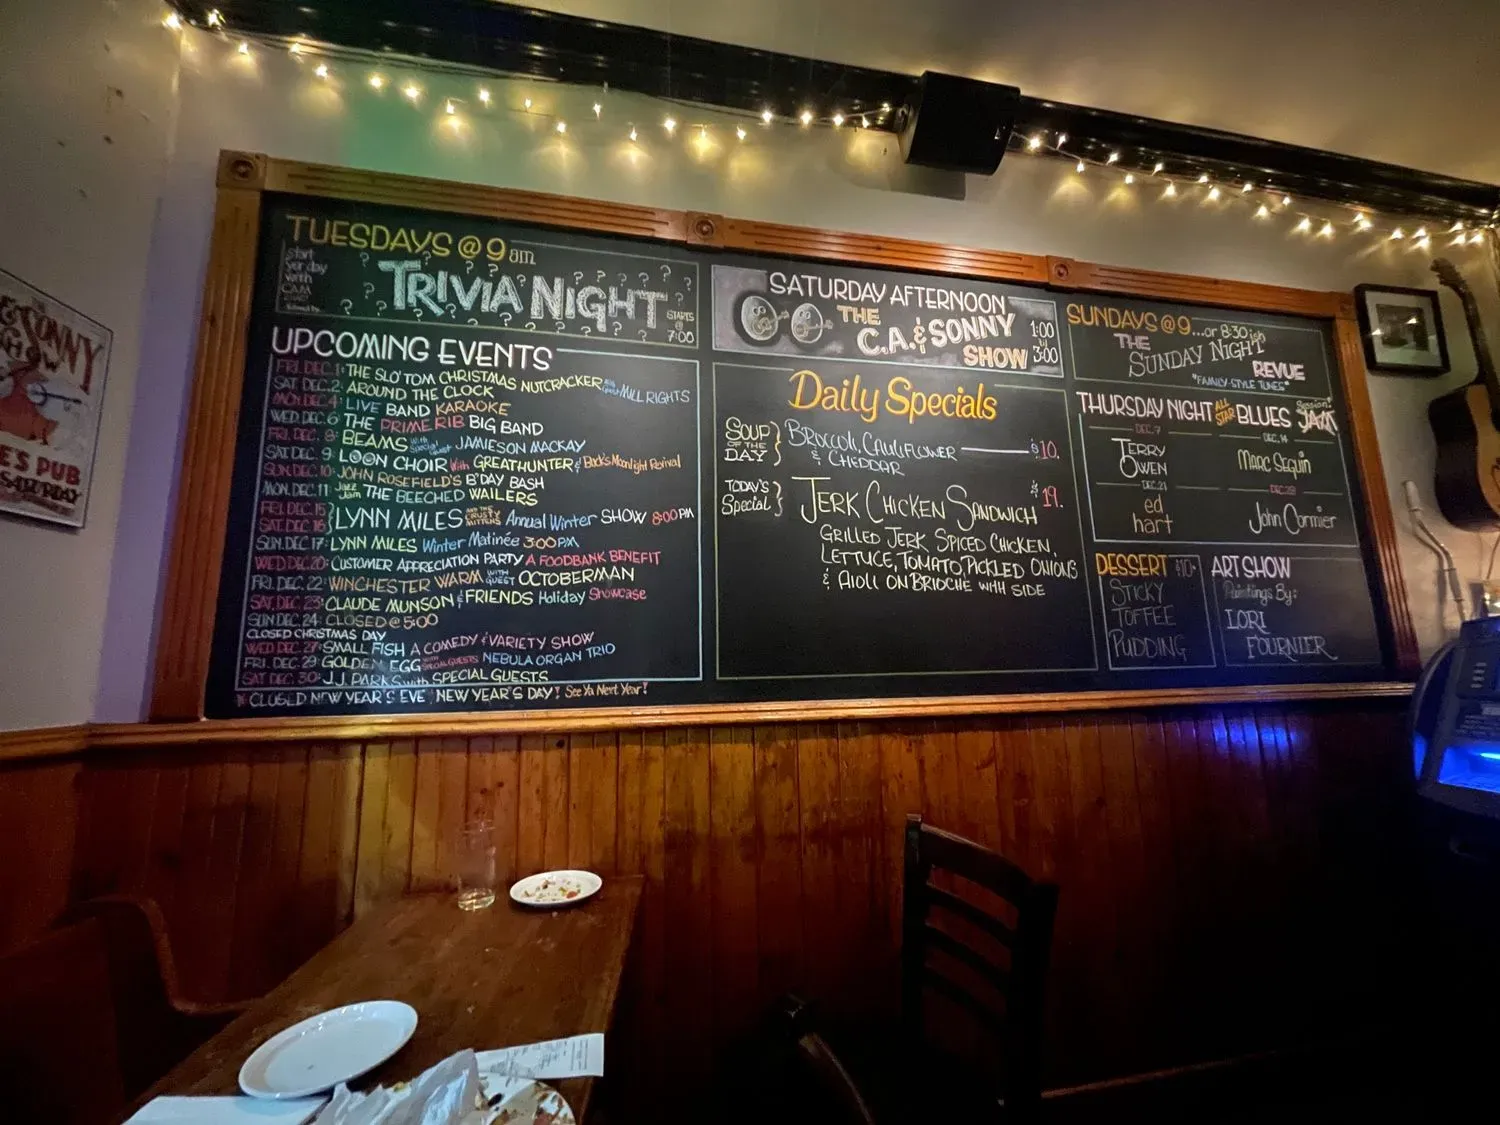 TUESDAYS @ 9 am
start
yer day
with
TRIVIA NIGHT
STARTS
@
7:00
UPCOMING EVENTS
FRI. DEC. 1: THE SLO' TOM CHRISTMAS NUTCRACKER MILL RIGHTS
SAT. DEC. 2: AROUND THE CLOCK
MON. DEC. 4: LIVE BAND KARAOKE
WED. DEC. 6: THE PRIME RIB BIG BAND
FRI. DEC. 8: BEAMS with Special Guest JAMIESON MACKAY
SAT. DEC. 9: LOON CHOIR with GREATHUNTER & Beck's Moonlight Revival
SUN. DEC. 10: JOHN ROSEFIELD'S B'DAY BASH
MON. DEC. 11: Jazz Jam THE BEECHED WAILERS
FRI. DEC. 15
SAT. DEC. 16 } LYNN MILES AND THE CRUSTY MITTENS Annual Winter SHOW 8:00 PM
SUN. DEC. 17: LYNN MILES Winter Matinée 3:00 PM
WED. DEC. 20: CUSTOMER APPRECIATION PARTY A FOODBANK BENEFIT
FRI. DEC. 22: WINCHESTER WARM WITH GUEST OCTOBERMAN
SAT. DEC. 23: CLAUDE MUNSON & FRIENDS Holiday Showcase
SUN. DEC. 24: CLOSED @ 5:00
CLOSED CHRISTMAS DAY
WED. DEC. 27: SMALL FISH A COMEDY & VARIETY SHOW
FRI. DEC. 29: GOLDEN EGG WITH SPECIAL GUESTS NEBULA ORGAN TRIO
SAT. DEC. 30: J.J. PARKS with SPECIAL GUESTS
* CLOSED NEW YEAR'S EVE NEW YEAR'S DAY! See Ya Next Year!
SATURDAY AFTERNOON
THE
C.A. & SONNY
SHOW
1:00
til
3:00
Daily Specials
SOUP
OF THE
DAY } BROCCOLI, CAULIFLOWER $10.
& CHEDDAR
TODAY'S
Special } JERK CHICKEN SANDWICH $19.
GRILLED JERK SPICED CHICKEN,
LETTUCE, TOMATO, PICKLED ONIONS
& AIOLI ON BRIOCHE WITH SIDE
SUNDAYS @ 9...or 8:30 ish
THE
SUNDAY NIGHT
REVUE
"FAMILY-STYLE TUNES"
THURSDAY NIGHT ALL STAR BLUES Session! JAM
DEC. 7
TERRY
OWEN
DEC. 14
MARC SEGUIN
DEC. 21
ed
hart
DEC. 28
John Cormier
DESSERT $10.
STICKY
TOFFEE
PUDDING
ART SHOW
Paintings By:
LORI
FOURNIER
SONNY
E'S PUB
SATURDAY